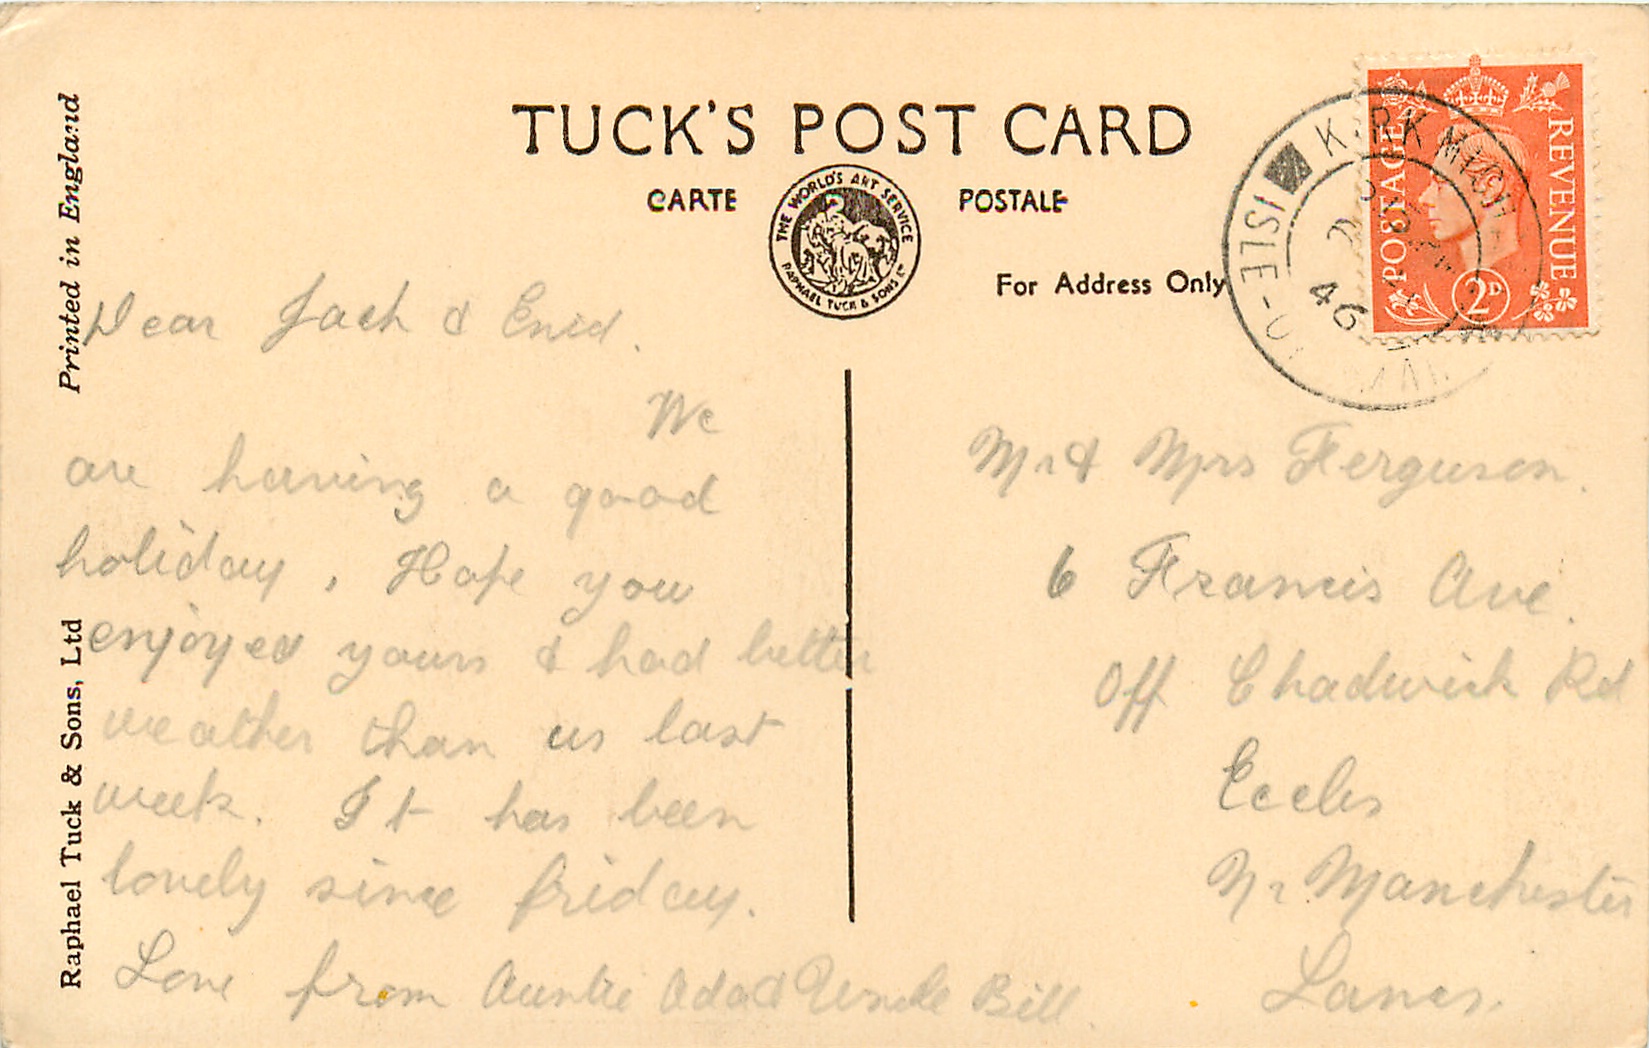 TUCK'S POST CARD
CARTE POSTALE
THE WORLD'S ART SERVICE
RAPHAEL TUCK & SONS LTD
For Address Only
Printed in England
Raphael Tuck & Sons, Ltd
POSTAGE REVENUE
2D
KIRK MICHAEL
ISLE-OF-MAN
46
Dear Jack & Enid.
We
are having a good
holiday, Hope you
enjoyed yours & had better
weather than us last
week. It has been
lovely since friday.
Love from Auntie Ada & Uncle Bill.
Mr & Mrs Ferguson.
6 Francis Ave.
Off Chadwick Rd
Eccles
Nr Manchester
Lancs.